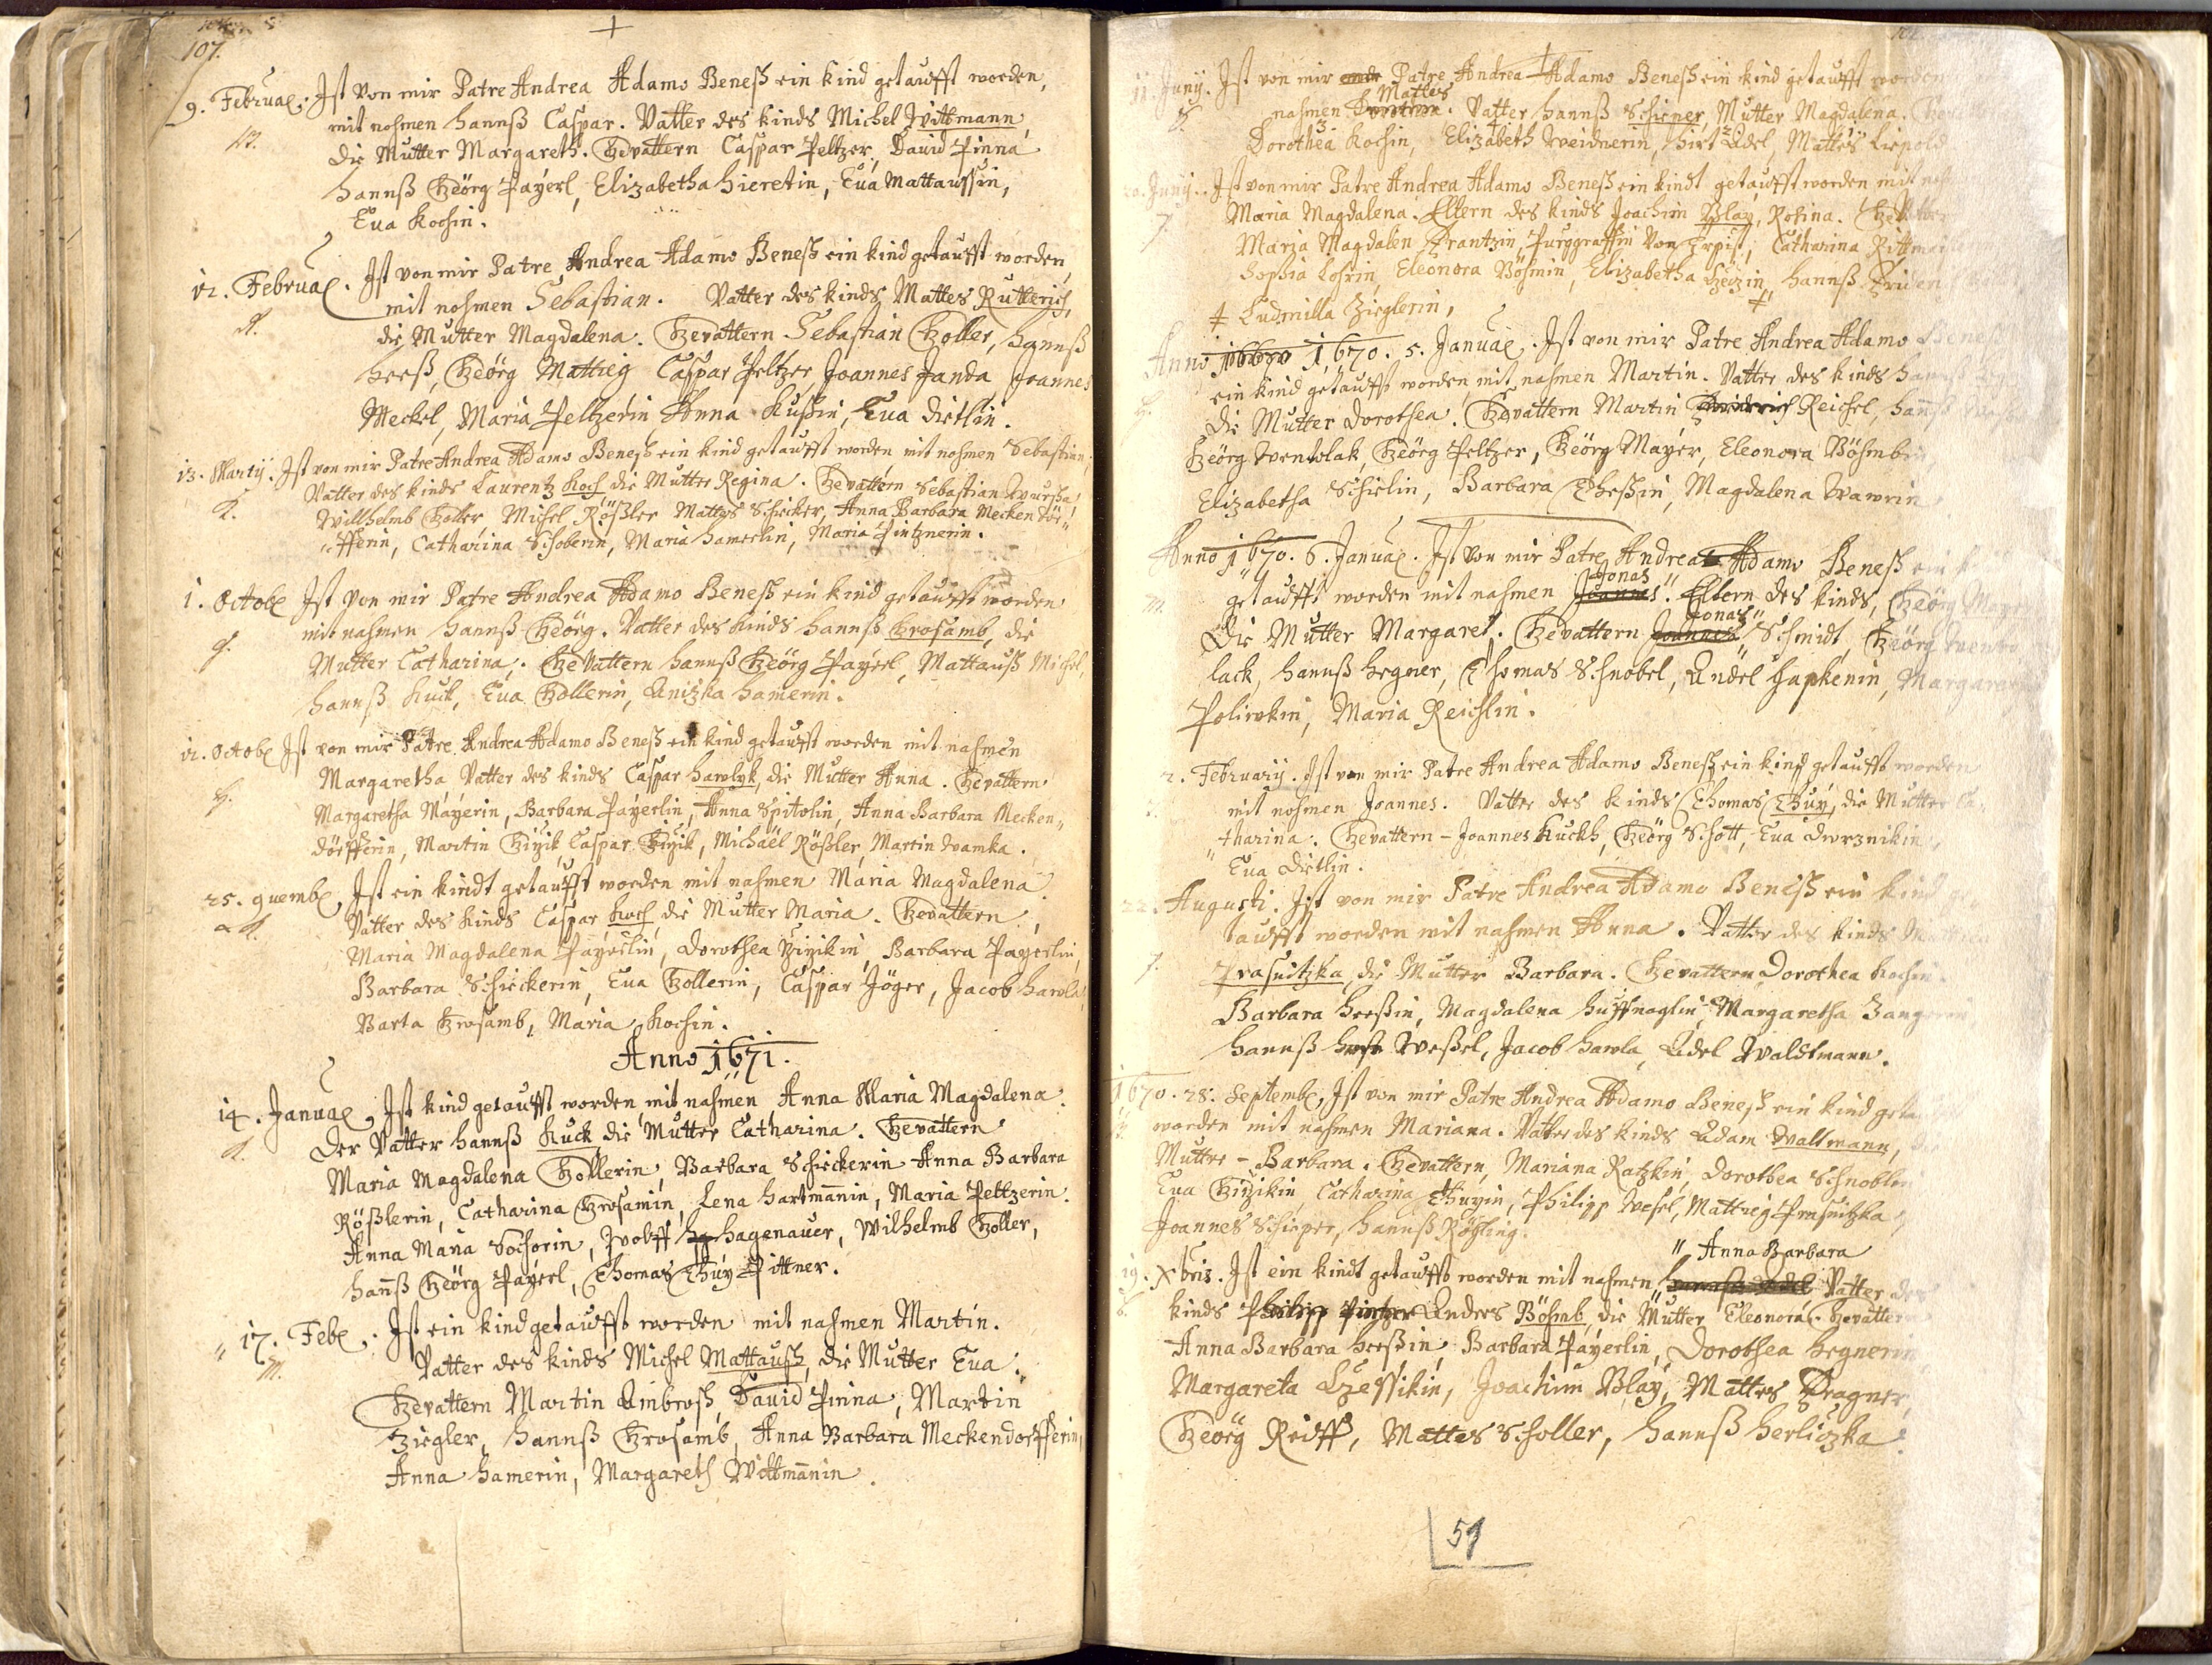 107.
9. Februar. Ist von mir Patre Andrea Adamo Beneß ein kind getaufft worden,
mit nahmen Hannß Caspar. Vatter des kinds Michel Wittmann,
W.
die Mutter Margareth. Gevattern Caspar Peltzer, David Pinna
Hannß Geörg Payerl, Elizabetha Hieretin, Eva Mattaussin,
Eva Kochin.
12. Februar. Ist von mir Patre Andrea Adamo Beneß ein kind getaufft worden,
mit nahmen Sebastian. Vatter des kinds Mattes Rutterich,
R.
die Mutter Magdalena. Gevattern Sebastian Goller, Hannß
Heeß, Geörg Mattieg Caspar Peltzer, Joannes Janda Joannes
Meckel, Maria Peltzerin, Anna Kußin, Eva Dietlin.
13. Martij. Ist von mir Patre Andrea Adamo Beneß ein kind getaufft worden mit nahmen Sebastian,
Vatter des kinds Laurentz Koch die Mutter Regina. Gevattern Sebastian Wurßa,
K.
Willhelmb Goller, Michel Rößler Mattes Schicker, Anna Barbara Meckendör„
„fferin, Catharina Schoberin, Maria Hamerlin, Maria Pintznerin.
1. Octobr Ist von mir Patre Andrea Adamo Beneß ein kind getaufft worden
mit nahmen Hannß Geörg. Vatter des kinds Hannß Grosamb, die
G.
Mutter Catharina. Gevattern Hannß Geörg Payerl, Mattauß Michel,
Hannß Kuck, Eva Gollerin, Anizka Hamerin.
12. Octobr Ist von mir Patre Andrea Adamo Beneß ein kind getaufft worden mit nahmen
Margaretha, Vatter des kinds Caspar Hawlyk, die Mutter Anna. Gevattern
H.
Margaretha Mayerin, Barbara Payerlin, Anna Spitolin, Anna Barbara Mecken„
dörfferin, Martin Gizik Caspar Gizik, Michäel Rößler, Martin Wamka.
25. 9vembr, Ist ein kindt getaufft worden mit nahmen Maria Magdalena
Vatter des kinds Caspar Koch, die Mutter Maria. Gevattern,
K.
Maria Magdalena Payerlin, Dorothea Gizikin, Barbara Payerlin,
Barbara Schickerin, Eva Gollerin, Caspar Jöger, Jacob Hawla,
Barta Grosamb, Maria Kochin.
Anno 1671.
14. Januar, Ist kind getaufft worden mit nahmen Anna Maria Magdalena.
Der Vatter Hannß Kuck die Mutter Catharina. Gevattern
K.
Maria Magdalena Gollerin, Barbara Schickerin Anna Barbara
Rößlerin, Catharina Grosamin, Lena Hartmanin, Maria Peltzerin.
Anna Maria Sochorin, Wolff Hagenauer, Wilhelmb Goller,
Hanß Geörg Payerl, Thomas Thuy Pittner.
17. Febr. Ist ein kind getaufft worden mit nahmen Martin.
Vatter des kinds Michel Mattauß, die Mutter Eva.
M.
Gevattern Martin Ambroß, David Pinna, Martin
Ziegler, Hannß Grosamb, Anna Barbara Meckendorfferin,
Anna Hamerin, Margareth Wittmanin.
11. Junij. Ist von mir Patre Andrea Adamo Beneß ein kind getaufft worden
nahmen Mattes. Vatter Hannß Schiener, Mutter Magdalena.
S.
Dorothea Kochin, Elizabeth Weidnerin, Hirt Adel, Mattes Liepold
20. Junij. Ist von mir Patre Andrea Adamo Beneß ein kindt getaufft worden mit
Maria Magdalena. Eltern des kinds Joachim Blay, Rosina.
Maria Magdalen Frantzin, Purggraffin von Trpist, Catharina
Sophia Lohrin, Eleonora Böhmin, Elizabetha, Hannß
‡ Ludmilla Zieglerin,
Anno 1670. 5. Januar. Ist von mir Patre Andrea Adamo Beneß
ein kind getaufft worden, mit nahmen Martin. Vatter des kinds Hannß
die Mutter Dorothea. Gevattern Martin Reichel, Hanß
Geörg Wentolak, Geörg Peltzer, Geörg Mayer, Eleonora
Elizabetha Schielin, Barbara Theßin, Magdalena Wawrin
Anno 1670. 6. Januar. Ist von mir Patre Andrea Adamo Beneß ein
getaufft worden mit nahmen Jonas. Eltern des kinds, Geörg Mayer
M.
Die Mutter Margaret. Gevattern Jonas Schmidt, Geörg Wento
lack, Hannß Hegner, Thomas Schnobel, Andel Hapkenin,
Poliwkin, Maria Reichlin.
2. February. Ist von mir Patre Andrea Adamo Beneß ein kind getaufft worden
mit nahmen Joannes. Vatter des kinds Thomas Thuy, die Mutter Ca„
„tharina. Gevattern - Joannes Kuckh, Geörg Schott, Eva Dworznikin,
Eva Dietlin.
22. Augusti. Ist von mir Patre Andrea Adamo Beneß ein kind ge„
taufft worden mit nahmen Anna. Vatter des kinds
P.
Prasnitzka, die Mutter Barbara. Gevattern Dorothea Kochin.
Barbara Heeßin, Magdalena Huffnaglin, Margaretha
Hannß Weßel, Jacob Hawla, Adel Waldtmann.
1670. 28. Septembr, Ist von mir Patre Andrea Adamo Beneß ein kind
worden mit nahmen Mariana. Vatter des kinds Adam Waltmann,
Mutter - Barbara. Gevattern, Mariana Ratzkin, Dorothea Schnoblin
Eva Gizikin Catharina Thuyin, Philipp Wesel, Mattieg Prasnitzka,
Joannes Schieper, Hannß Rößling.
„ Anna Barbara
19. Xbris. Ist ein kindt getaufft worden mit nahmen Vatter des
kinds Anders Böhmb, die Mutter Eleonora. Gevattern
B.
Anna Barbara Heeßin, Barbara Payerlin, Dorothea Hegnerin,
Margareta Lzessikin, Joachim Blay, Mattes Dragner,
Geörg Reiff, Mattes Scholler, Hannß Herliczka.
51